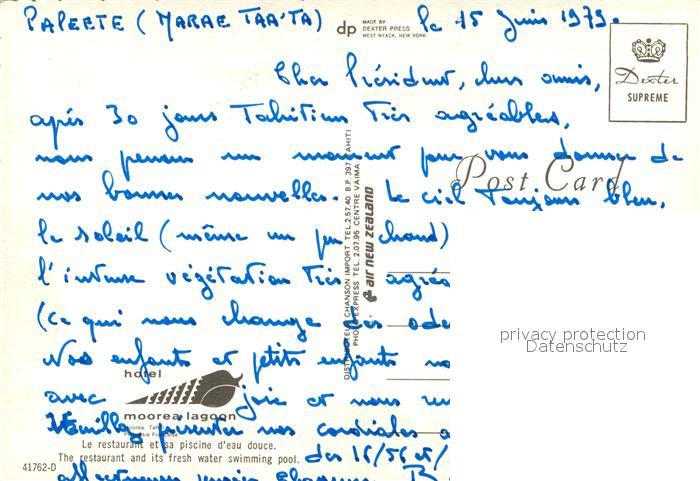 PAPEETE (MARAE TAATA) le 15 Juin 1979.
dp MADE BY
DEXTER PRESS
WEST NYACK, NEW YORK
Dexter
SUPREME
Cher Président, chers amis,
après 30 jours Tahitiens très agréables,
nous prenons un moment pour vous donner de
nos bonnes nouvelles. Le ciel toujours bleu,
Post Card
le soleil (même un peu chaud)
l'intense végétation très agréa
(ce qui nous change des ode
Nos enfants et petits enfants no
avec joie et nous
Veuillez présenter nos cordiales a
des 16/56 et/
affectueuses pensées
DISTRIBUTED CHANSON IMPORT TEL. 2.57.40 B.P. 397 TAHITI
PHOTO EXPRESS TEL. 2.07.95 CENTRE VAIMA
BY air new zealand
privacy protection
Datenschutz
hotel
moorea lagoon
Moorea, Tahiti
Polynésie Française
Le restaurant et sa piscine d'eau douce.
The restaurant and its fresh water swimming pool.
41762-D